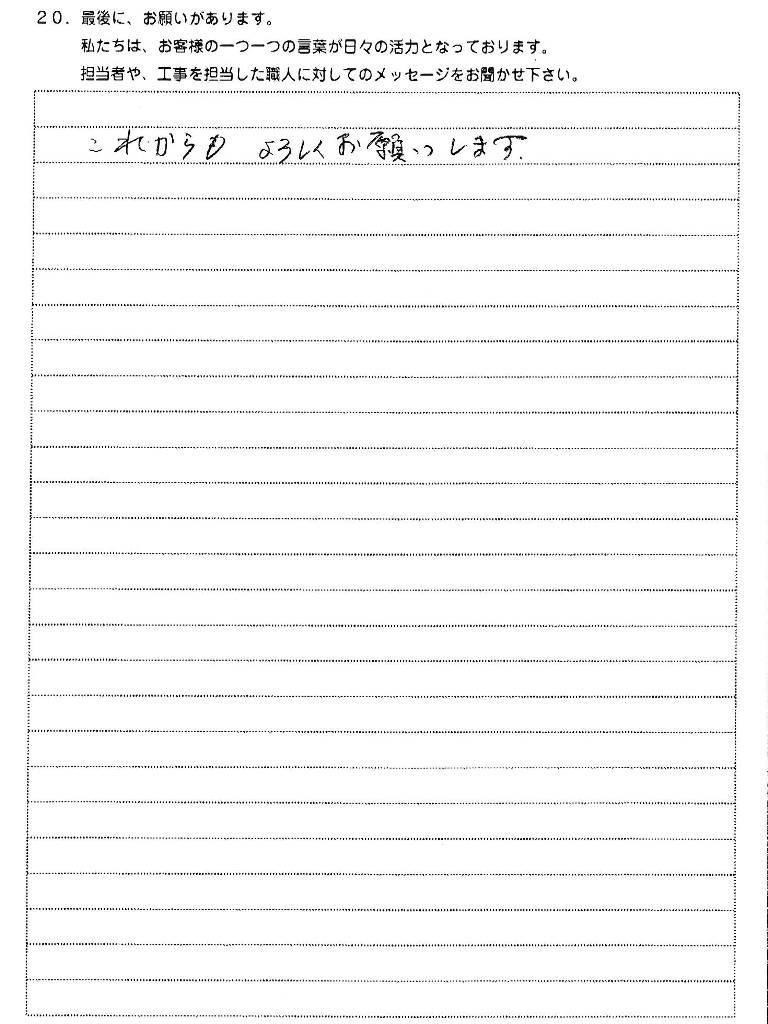 20. 最後に、お願いがあります。
私たちは、お客様の一つ一つの言葉が日々の活力となっております。
担当者や、工事を担当した職人に対してのメッセージをお聞かせ下さい。
これからも よろしくお願いします.